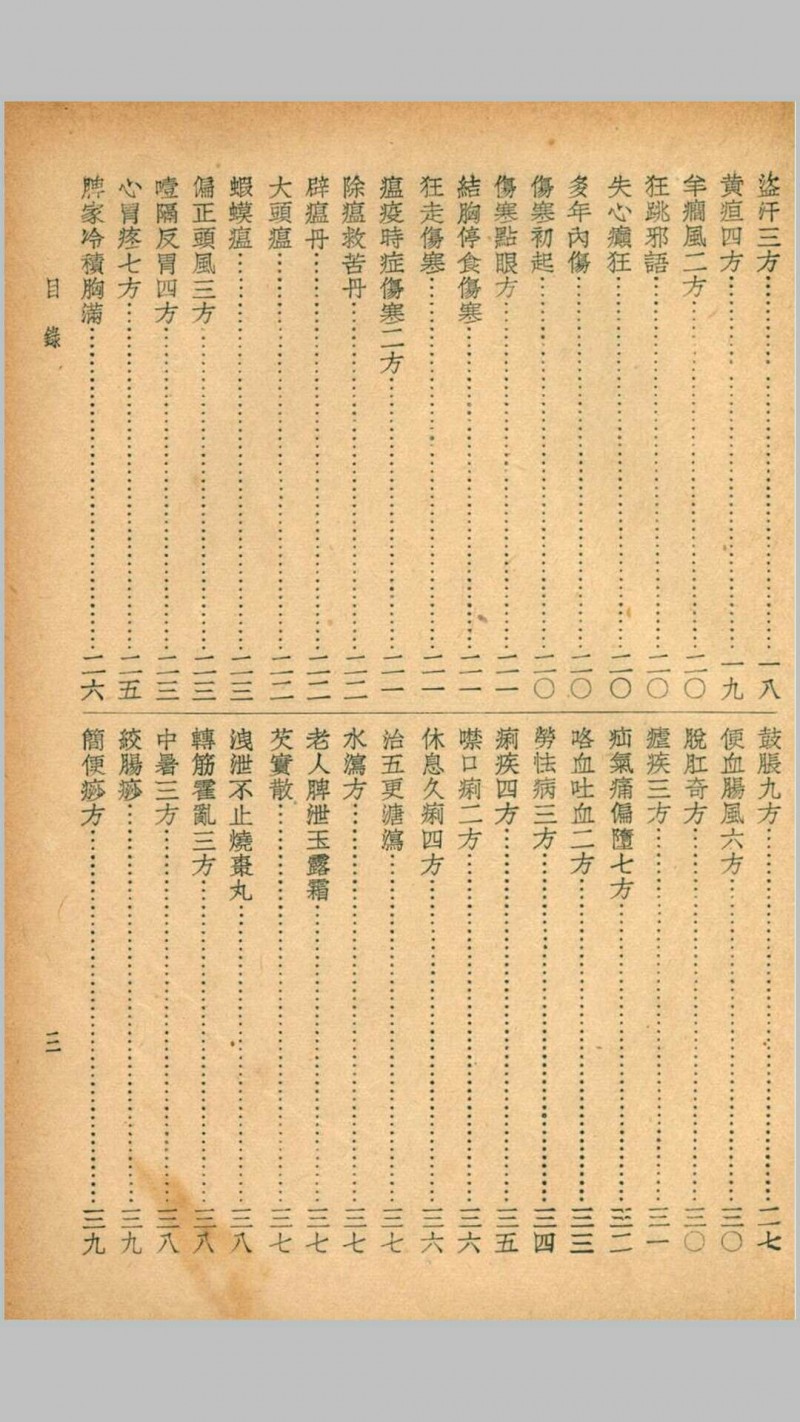 盜汗三方……一八
黃疸四方……一九
羊癎風二方……二〇
狂跳邪語……二〇
失心癲狂……二〇
多年內傷……二〇
傷寒初起……二〇
傷寒點眼方……二一
結胸停食傷寒……二一
狂走傷寒……二一
瘟疫時症傷寒二方……二一
除瘟救苦丹……二二
辟瘟丹……二二
大頭瘟……二二
蝦蟆瘟……二三
偏正頭風三方……二三
噎隔反胃四方……二三
心胃疼七方……二五
脾家冷積胸滿……二六
鼓脹九方……二七
便血腸風六方……三〇
脫肛奇方……三〇
瘧疾三方……三一
疝氣痛偏墮七方……三二
咯血吐血二方……三三
勞怯病三方……三四
痢疾四方……三五
噤口痢二方……三六
休息久痢四方……三六
治五更溏瀉……三七
水瀉方……三七
老人脾泄玉露霜……三七
芡實散……三七
洩泄不止燒棗丸……三八
轉筋霍亂三方……三八
中暑三方……三八
絞腸痧……三九
簡便痧方……三九
目錄
三